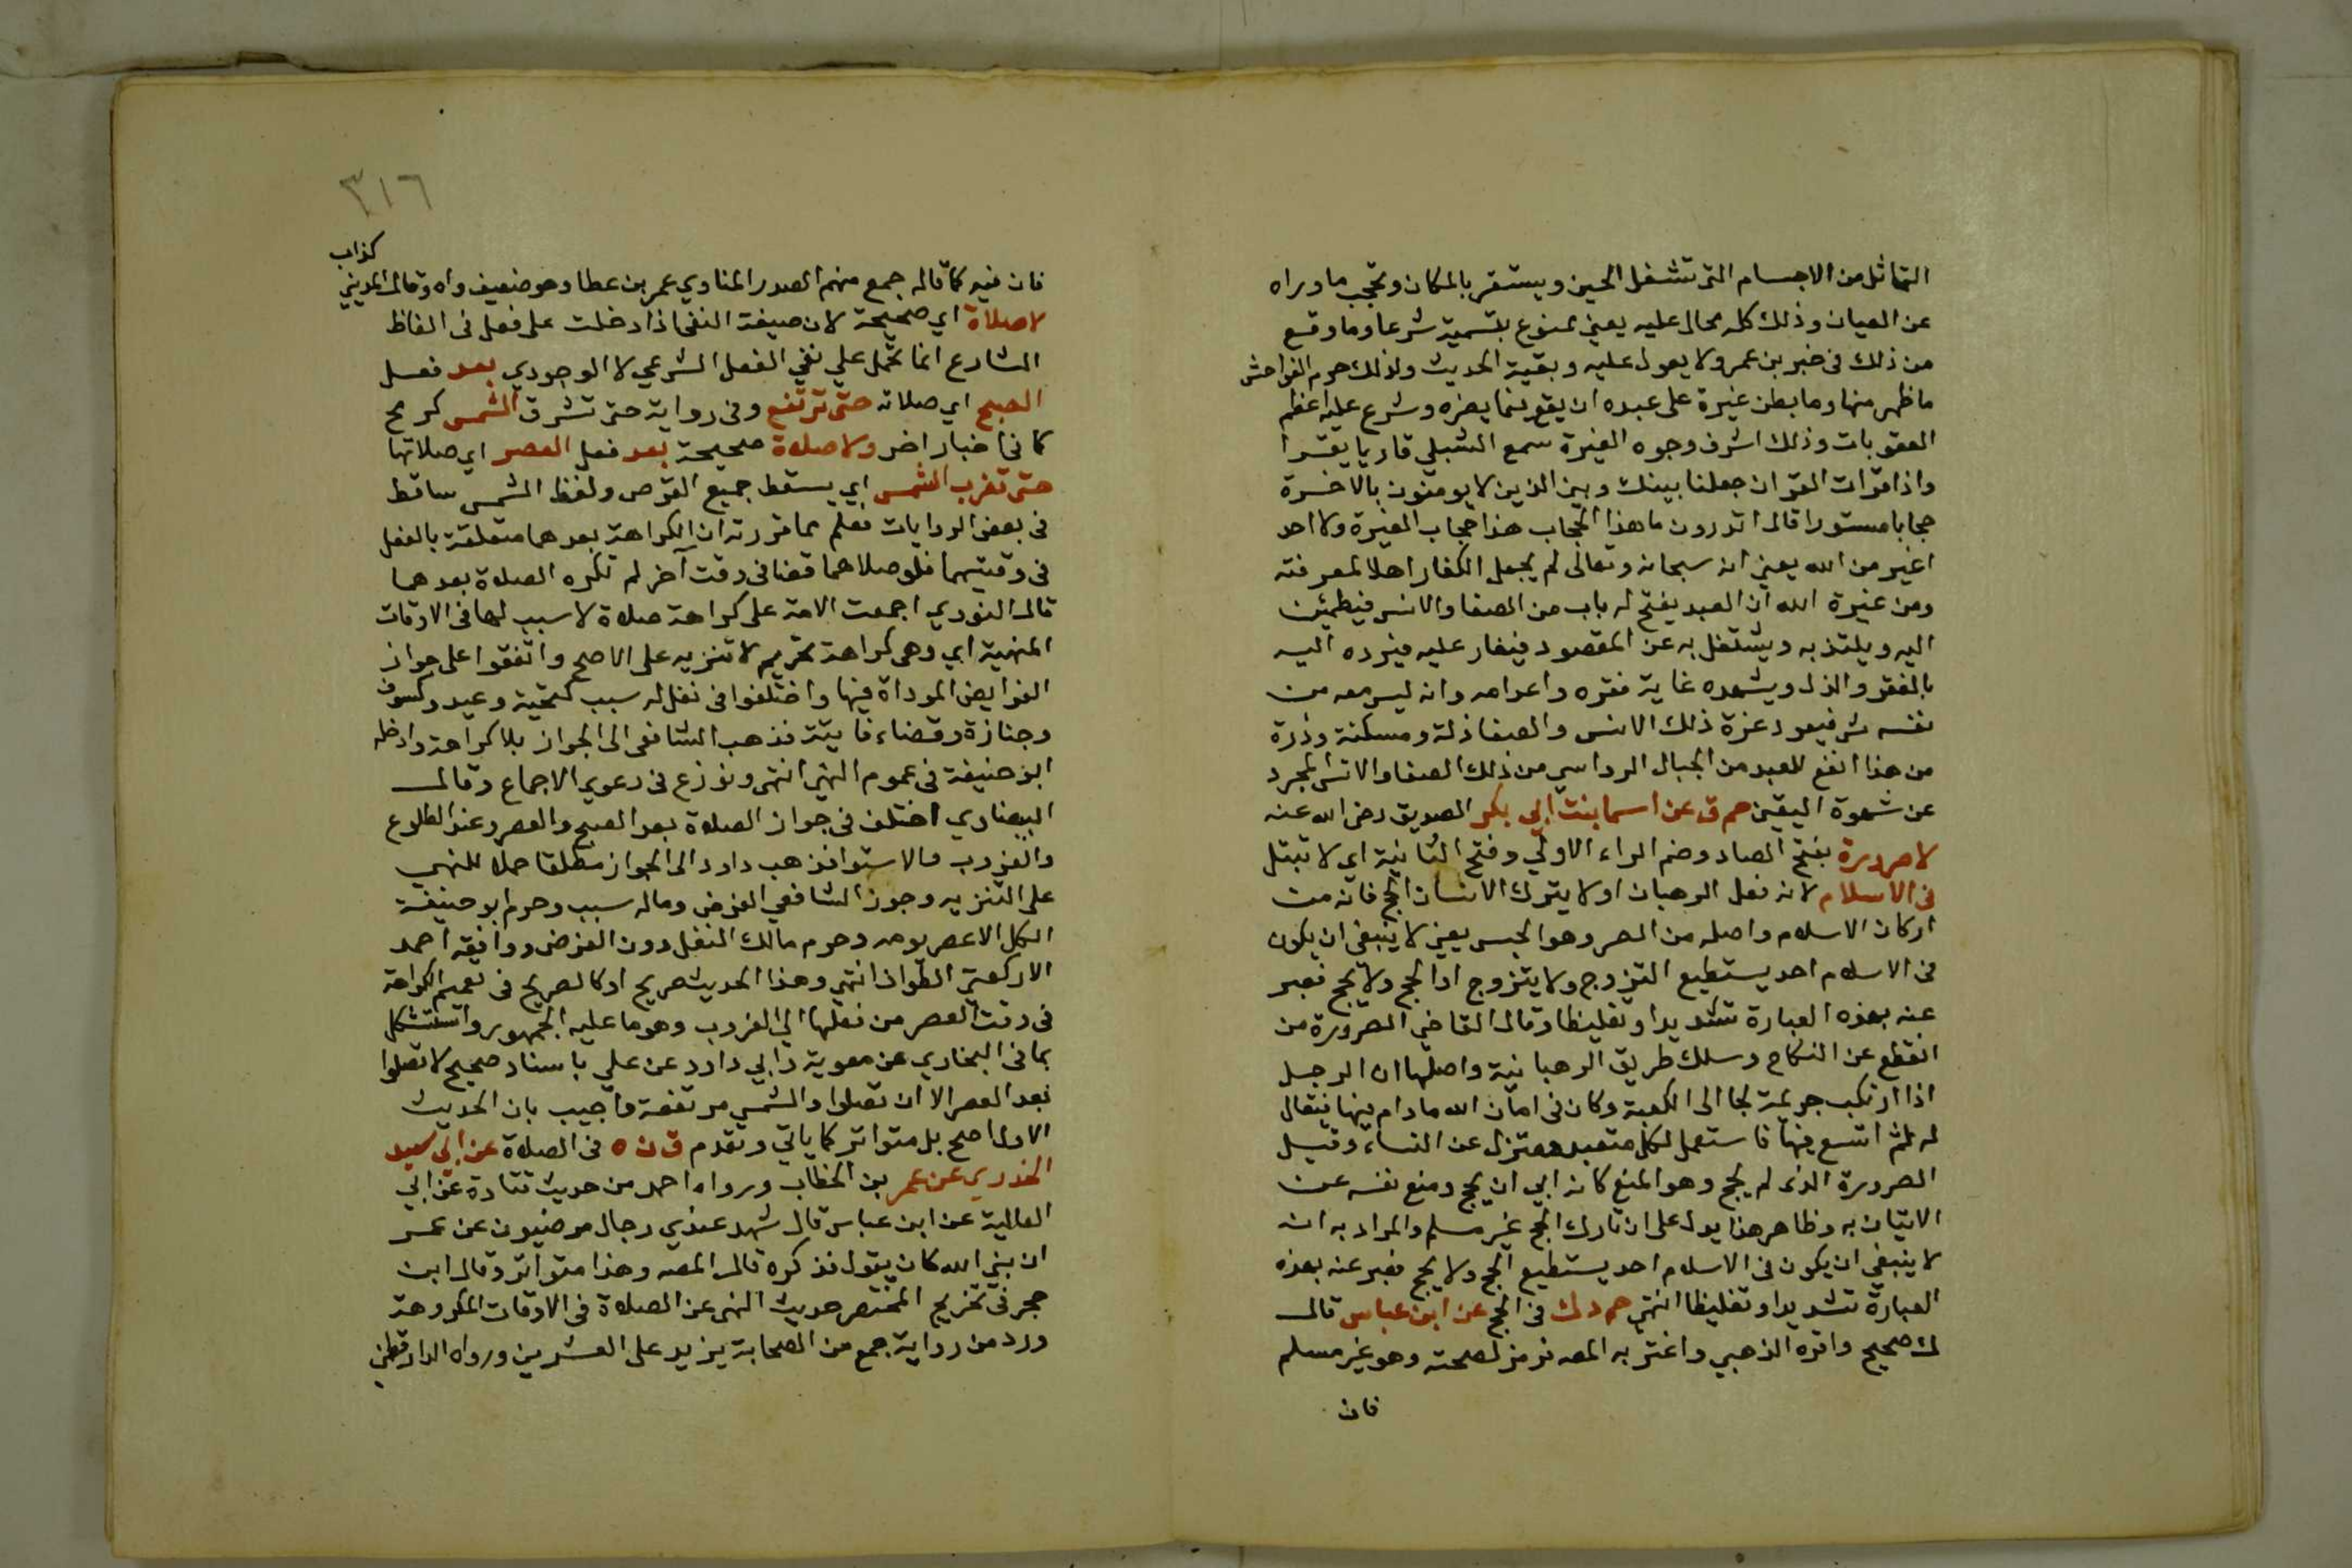 التماثل من الاجسام التى تشغل الحيز ويستقر بالمكان وتحجب ماوراه
عن العيان وذلك كله محال عليه يعني ممنوع بتسمية شرعا وما وقع
من ذلك فى خبر بن عمر ولا يعول عليه وبقية الحديث ولذلك حرم الفواحش
ماظهر منها وما بطن غيرة على عبده ان يقع بما يضره وشرع عليها اعظم
العقوبات وذلك اشرف وجوه الغيرة سمع الشبلي قاريا يقرا
واذا قرات القران جعلنا بينك وبين الذين لا يومنون بالاخرة
حجابا مستورا قال اتدرون ماهذا الحجاب هذا حجاب الغيرة ولا احد
اغير من الله يعني انه سبحانه وتعالى لم يجعل الكفار اهلا لمعرفته
ومن غيرة الله ان العبد يفتح له باب من الصفا والانس فيطمئن
اليه ويلتذ به ويشتغل به عن المقصود فيغار عليه فيرده اليه
بالفقر والذل ويشهده غاية فقره واعدامه وانه ليس معه من
نفسه شى فيعود عزة ذلك الانس والصفا ذلة ومسكنة وذرة
من هذا انفع للعبد من الجبال الرواسي من ذلك الصفا والانس المجرد
عن شهوة اليقين حم ق عن اسما بنت ابي بكر الصديق رضى الله عنه
لا صرورة بفتح الصاد وضم الراء الاولي وفتح الثانية اي لا تبتل
فى الاسلام لانه فعل الرهبان او لا يترك الانسان الحج فانه من
اركان الاسلام واصله من الصر وهو الحبس يعني لا ينبغى ان يكون
فى الاسلام احد يستطيع التزوج ولا يتزوج او الحج ولا يحج فعبر
عنه بهذه العبارة تشديدا وتغليظا وقال القاضي الصرورة من
انقطع عن النكاح وسلك طريق الرهبانية واصلها ان الرجل
اذا ارتكب جريمة لجا الى الكعبة وكان فى امان الله مادام فيها فيقال
له ثم اتسع فيها فاستعمل لكل متعبد معتزل عن النساء وقيل
الصرورة الذى لم يحج وهو المنع كانه ابي ان يحج ومنع نفسه عن
الاتيان به وظاهر هذا يدل على ان تارك الحج غير مسلم والمراد به انه
لا ينبغي ان يكون فى الاسلام احد يستطيع الحج ولا يحج فعبر عنه بهذه
العبارة تشديدا وتغليظا انتهى حم د ك فى الحج عن ابن عباس قال
ك صحيح واقره الذهبي واغتر به المصه فرمز لصحته وهو غير مسلم
فان
٣١٦
كذاب
فان فيه كما قاله جمع منهم الصدر المناوي عمر بن عطا وهو ضعيف واه وقال المديني
لا صلاة اي صحيحة لان صيغة النفى اذا دخلت على فعل فى الفاظ
الشارع انما تحمل علي نفي الفعل الشرعي لا الوجودي بعد فعل
الصبح اي صلاته حتى ترتفع وفى رواية حتى تشرق الشمس كرمح
كما فى اخبار اخر ولا صلاة صحيحة بعد فعل العصر اي صلاتها
حتى تغرب الشمس اي يسقط جميع القرص ولفظ الشمس ساقط
فى بعض الروايات فعلم مما قررته ان الكراهة بعدهما متعلقة بالفعل
فى وقتيهما فلو صلاهما قضا فى وقت آخر لم تكره الصلاة بعدهما
قال النووي اجمعت الامة على كراهة صلاة لا سبب لها فى الاوقات
المنهية اي وهى كراهة تحريم لا تنزيه على الاصح واتفقوا على جواز
الفرايض الموداة فيها واختلفوا فى نفل له سبب كتحية وعيد وكسوف
وجنازة وقضاء فايتة فذهب الشافعى الى الجواز بلا كراهة وادخله
ابو حنيفة فى عموم النهى انتهى ونوزع فى دعوي الاجماع وقال
البيضاوي اختلف فى جواز الصلاة بعد الصبح والعصر وعند الطلوع
والغروب والاستوا فذهب داود الى الجواز مطلقا حملا للنهى
على التنزيه وجوز الشافعي الفرض وماله سبب وحرم ابو حنيفة
الكل الا عصر يومه وحرم مالك النفل دون الفرض ووافقه احمد
الا ركعتي الطواف انتهي وهذا الحديث صريح او كالصريح فى تعميم الكراهة
فى وقت العصر من فعلها الي الغروب وهو ما عليه الجمهور واستشكل
بما فى البخاري عن معوية وابي داود عن علي باسناد صحيح لا تصلوا
بعد العصر الا ان تصلوا والشمس مرتفعة واجيب بان الحديث
الاول اصح بل متواتر كما ياتي وتقدم ق ن ه فى الصلاة عن ابي سعيد
الخدري عن عمر بن الخطاب ورواه احمد من حديث قتادة عن ابي
العالية عن ابن عباس قال شهد عندي رجال مرضيون عن عمر
ان نبي الله كان يقول فذكره قال المصه وهذا متواتر وقال ابن
حجر فى تخريج المختصر حديث النهى عن الصلاة فى الاوقات المكروهة
ورد من رواية جمع من الصحابة يزيد على العشرين ورواه الدارقطني